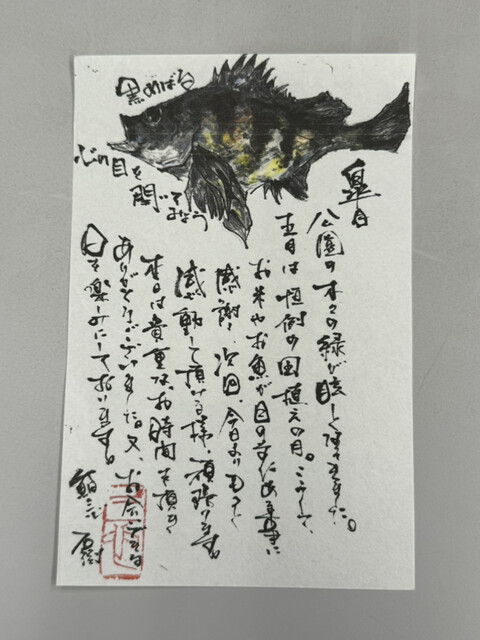 黒めばる
心の目を
開いて
みよう
皐月
公園の木々の緑が眩しくなってきました。
五月は恒例の田植えの月。こうして、
お米やお魚が目の前にある事に
感謝！次回、今日よりもっと
感動して頂ける様、頑張ります。
本日は貴重な、お時間を頂き
ありがとうございました。又、お会いできる
日を楽しみにしております。